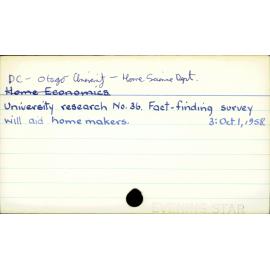 DC - Otago University - Home Science Dept.
Home Economics
University research No. 36. Fact-finding survey
will aid home makers. 3: Oct 1, 1958
EVENING STAR